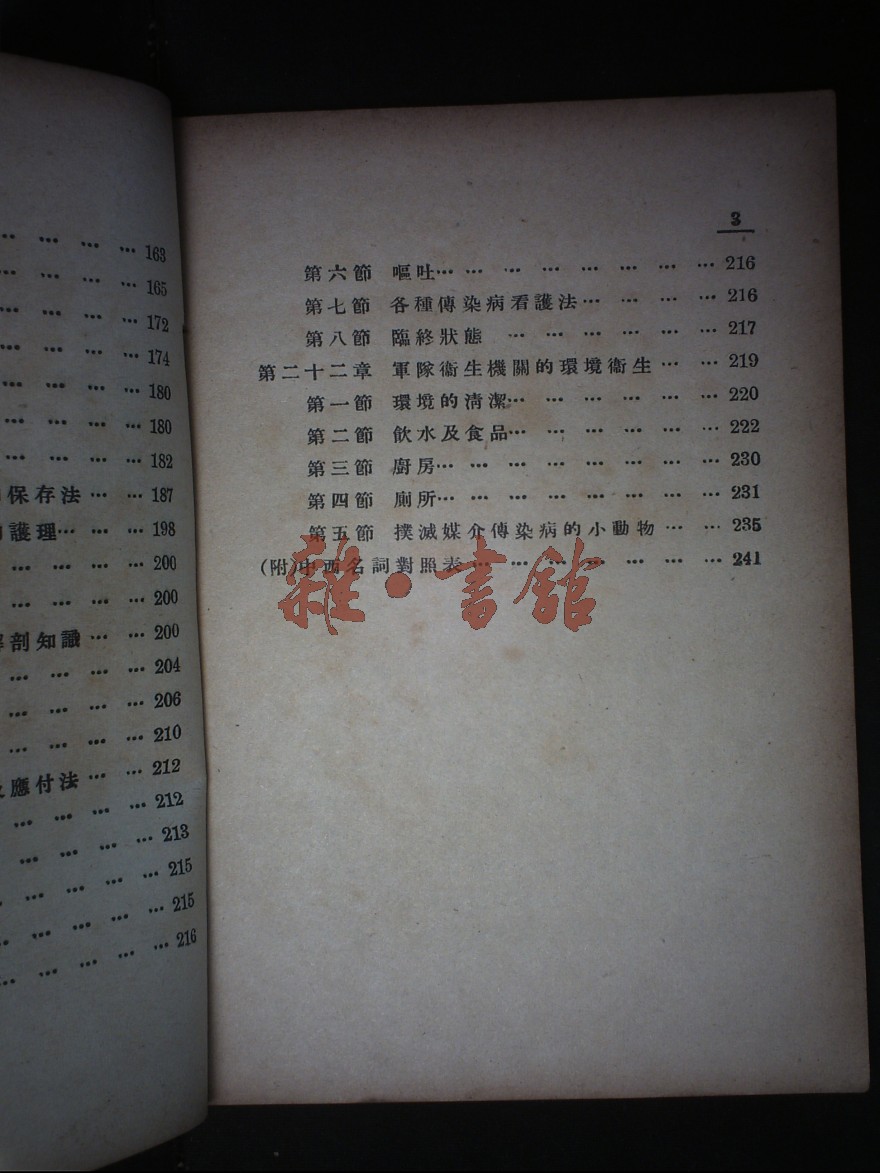 … … … … 163
… … … … 165
… … … … 172
… … … … 174
… … … … 180
… … … … 180
… … … … 182
保存法 … … 187
護理… … … 198
… … … … 200
… … … … 200
剖知識 … … 200
… … … … 204
… … … … 206
… … … … 210
應付法 … … 212
… … … … 212
… … … … 213
… … … … 215
… … … … 215
… … … … 216
3
第六節 嘔吐… … … … … … … … 216
第七節 各種傳染病看護法… … … … 216
第八節 臨終狀態 … … … … … … 217
第二十二章 軍隊衞生機關的環境衞生 … … 219
第一節 環境的淸潔… … … … … … 220
第二節 飲水及食品… … … … … … 222
第三節 廚房… … … … … … … … 230
第四節 廁所… … … … … … … … 231
第五節 撲滅媒介傳染病的小動物 … … 235
(附)中西名詞對照表 … … … … … … … 241
雜·書館